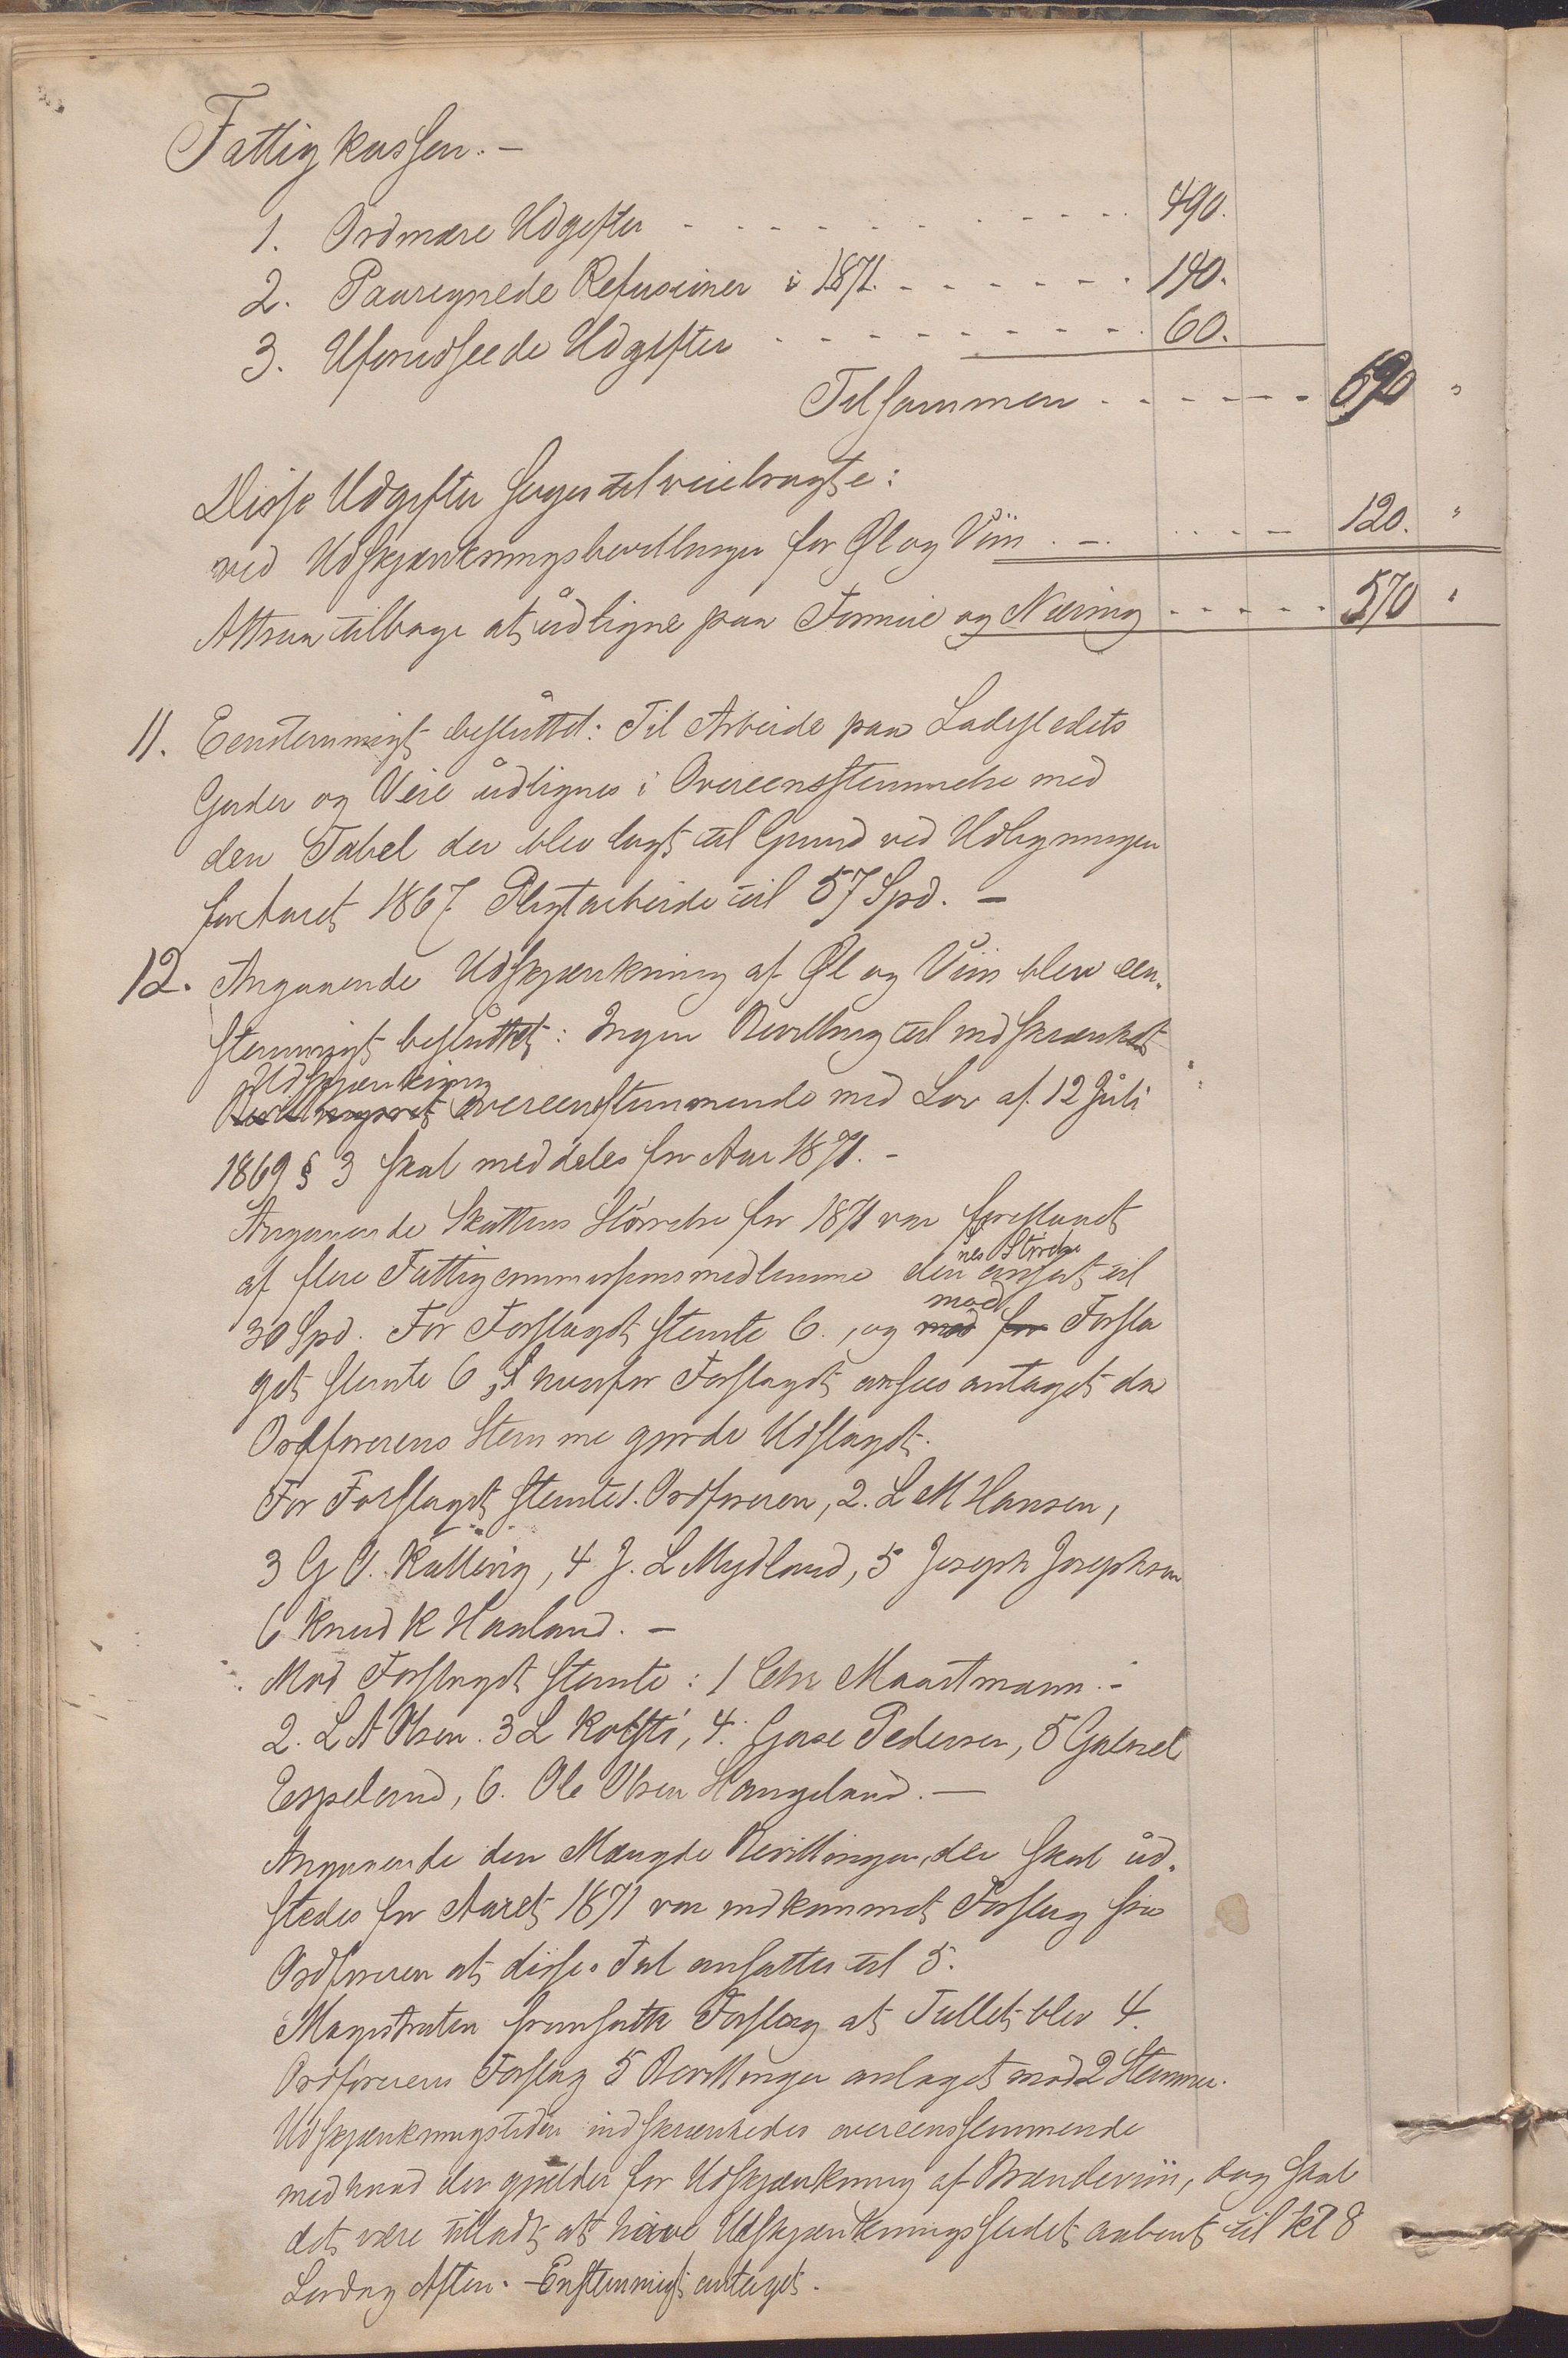 Fattigkassen. -
1. Ordinære Udgifter - - - - - - - - - 490.
2. Paaregnede Refusioner i 1871. - - - - - - 140.
3. Uforudseede Udgifter - - - - - - - - - 60.
Tilsammen - - - - - - 690 "
Disse Udgifter søges tilveiebragte:
ved Udskjænkningsbevillinger for Øl og Viin . - . . . . - - 120. "
Altsaa tilbage at udligne paa Formue og Næring - - - - - 570 "
11. Eenstemmigt besluttet: Til Arbeide paa Ladestedets
Gader og Veie udlignes i Overeensstemmelse med
den Tabel der blev lagt til Grund ved Udligningen
for Aaret 1867 Pligtarbeide til 57 Spd. -
12. Angaaende Udskjænkning af Øl og Viin blev een-
stemmigt besluttet: Ingen Bevilling til indskrænket
Udskjænkning
Overeenstemmende med Lov af 12 Juli
1869 § 3 skal meddeles for Aar 1871. -
Angaaende Skattens Størrelse for 1871 var foreslaaet
af flere Fattigcommissionsmedlemme den ansat til
nes Størrelse
30 Spd. For Forslaget stemte 6., og mod for Forsla
mod
get stemte 6, hvorfor Forslaget ansees antaget da
Ordførerens Stemme gjorde Udslaget.
For Forslaget stemte 1. Ordføreren, 2. L M Hansen,
3 G V. Kallevig, 4 J. L Mydland, 5 Joseph Josephsen
6 Knud K Haaland. -
Mod Forslaget stemte: 1 Chr Maartmann. -
2. L A Olsen. 3 L Rotsti, 4. Gjase Pedersen, 5 Gabriel
Espeland, 6. Ole Olsen Haugeland. -
Angaaende den Mængde Bevillinger, der skal ud-
stedes for Aaret 1871 var indkommet Forslag fra
Ordføreren at disses Tal ansattes til 5.
Magistraten fremsatte Forslag at Tallet blev 4.
Ordførerens Forslag 5 Bevillinger antaget mod 2 Stemmer.
Udskjænkningstiden indskrænkedes overeensstemmende
med hvad der gjælder for Udskjænkning af Brændeviin, dog skal
det være tilladt at have Udskjænkningsstedet aabent til kl 8
Lørdag Aften. - Enstemmigt antaget.